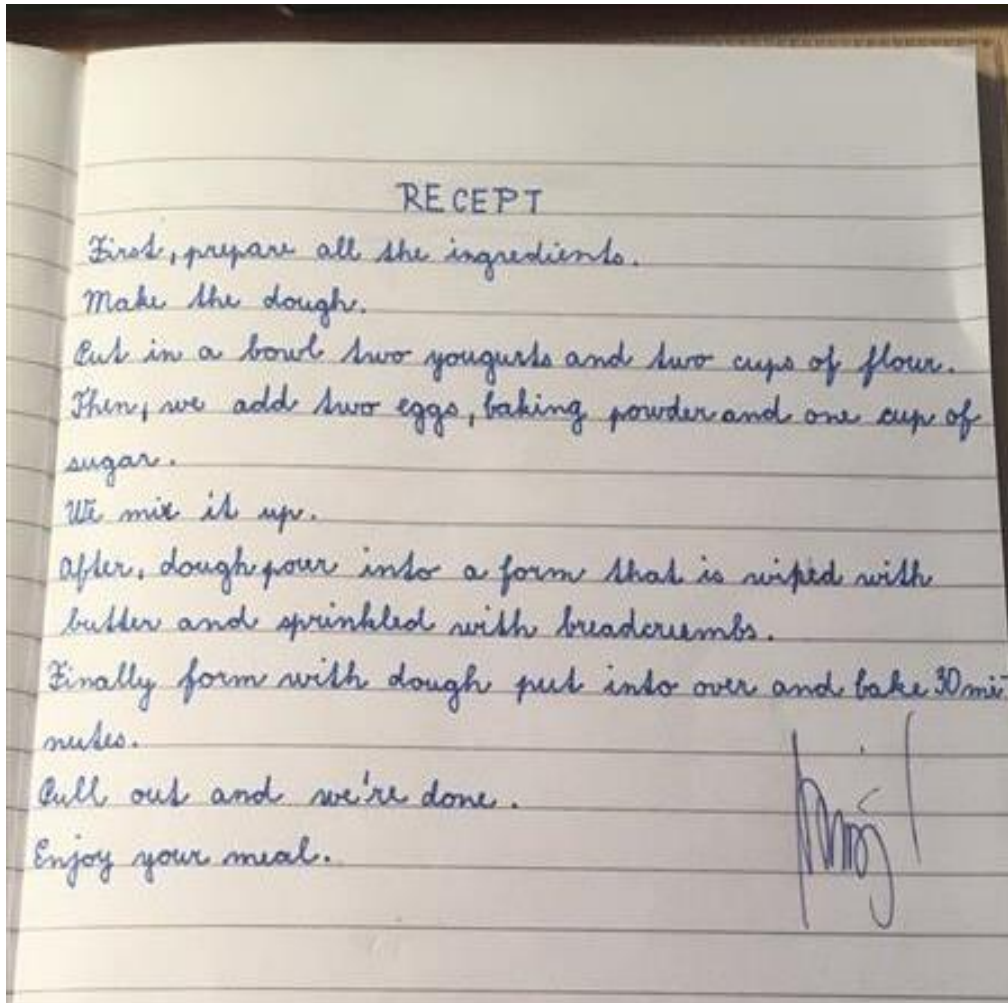 RECEPT
First, prepare all the ingredients.
Make the dough.
Put in a bowl two yougurts and two cups of flour.
Then, we add two eggs, baking powder and one cup of
sugar.
We mix it up.
After, dough pour into a form that is wiped with
butter and sprinkled with breadcrumbs.
Finally form with dough put into over and bake 30 mi-
nutes.
Pull out and we're done.
Enjoy your meal.